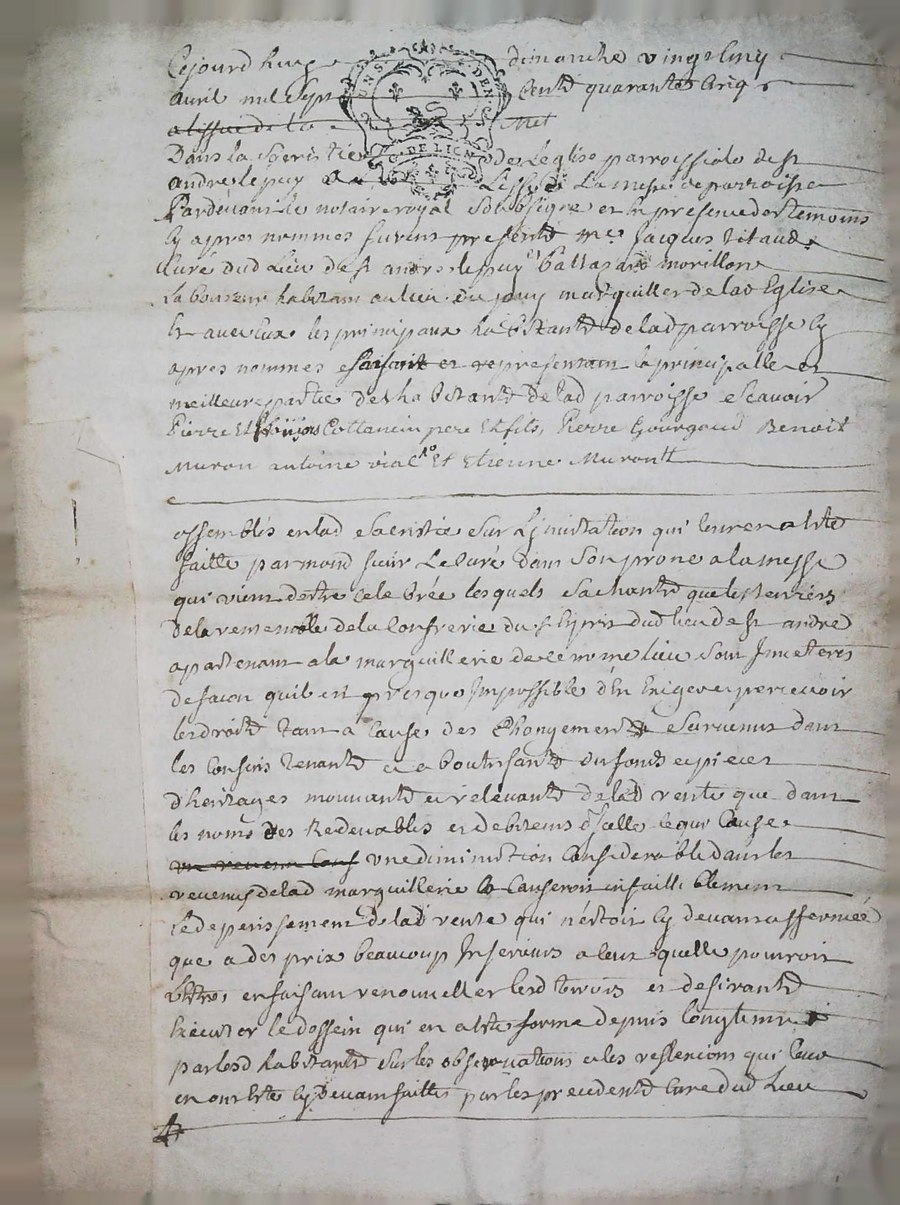 Cejourdhuy dimanche vingt cinq
avril mil sept Cents quarante Cinq
a lissue de la
UNS DEN S
DE LION
Dans la Sacristie de Leglise parroissialle de st
andre le puy Lissue de La messe de parroisse
Pardevant le notaire royal Soubsigne et En presence des temoins
Cy apres nommes furent presents me Jacques
Curé dud Lieu de st andre le puy Baltazard morillon
Laboureur habitant au lieu du puy marguillier de lad Eglise
Et avec Eux les principaux habitants de lad parroisse Cy
apres nommes faisant et representant la principalle et
meilleure partie des habitants de lad parroisse Scavoir
Pierre Et Cottancin pere Et fils, Pierre Gourgaud Benoit
Muron antoine vial Et Etienne Muron
assemblés en lad Sacristie Sur Linvitation qui leur en a Eté
faitte par mond Sieur Le Curé dans Son prone a la messe
qui vient destre celebrée lesquels Sachants que les terriers
de la rente noble de la Confrerie du st Esprit dud lieu de st andré
apartenant a la marguillerie de ce meme lieu Sont
de facon quil est presque Impossible dEn Exiger et percevoir
les droits tant a Cause des Changements Survenus dans
les Confins tenants et aboutissants des fonds et pieces
dheritages mouvants et relevants de lad rente que dans
les noms des Redevables et debiteurs dIcelle ce qui Cause
un revenu Cons une diminution Considerable dans les
revenus de lad marguillerie Et Causeroit infailliblement
le deperissement de lad rente qui nestoit Cy devant affermée
que a des prix beaucoup Inferieurs a Celuy quelle pourroit
Ettre, en faisant renouveller lesd terriers et desirants
Executer le dessein qui en a Eté forme depuis longtems
par lesd habitants Sur les observations et les reflexions qui leur
en ont Eté Cy devant faittes par les precedents Cures dud Lieu